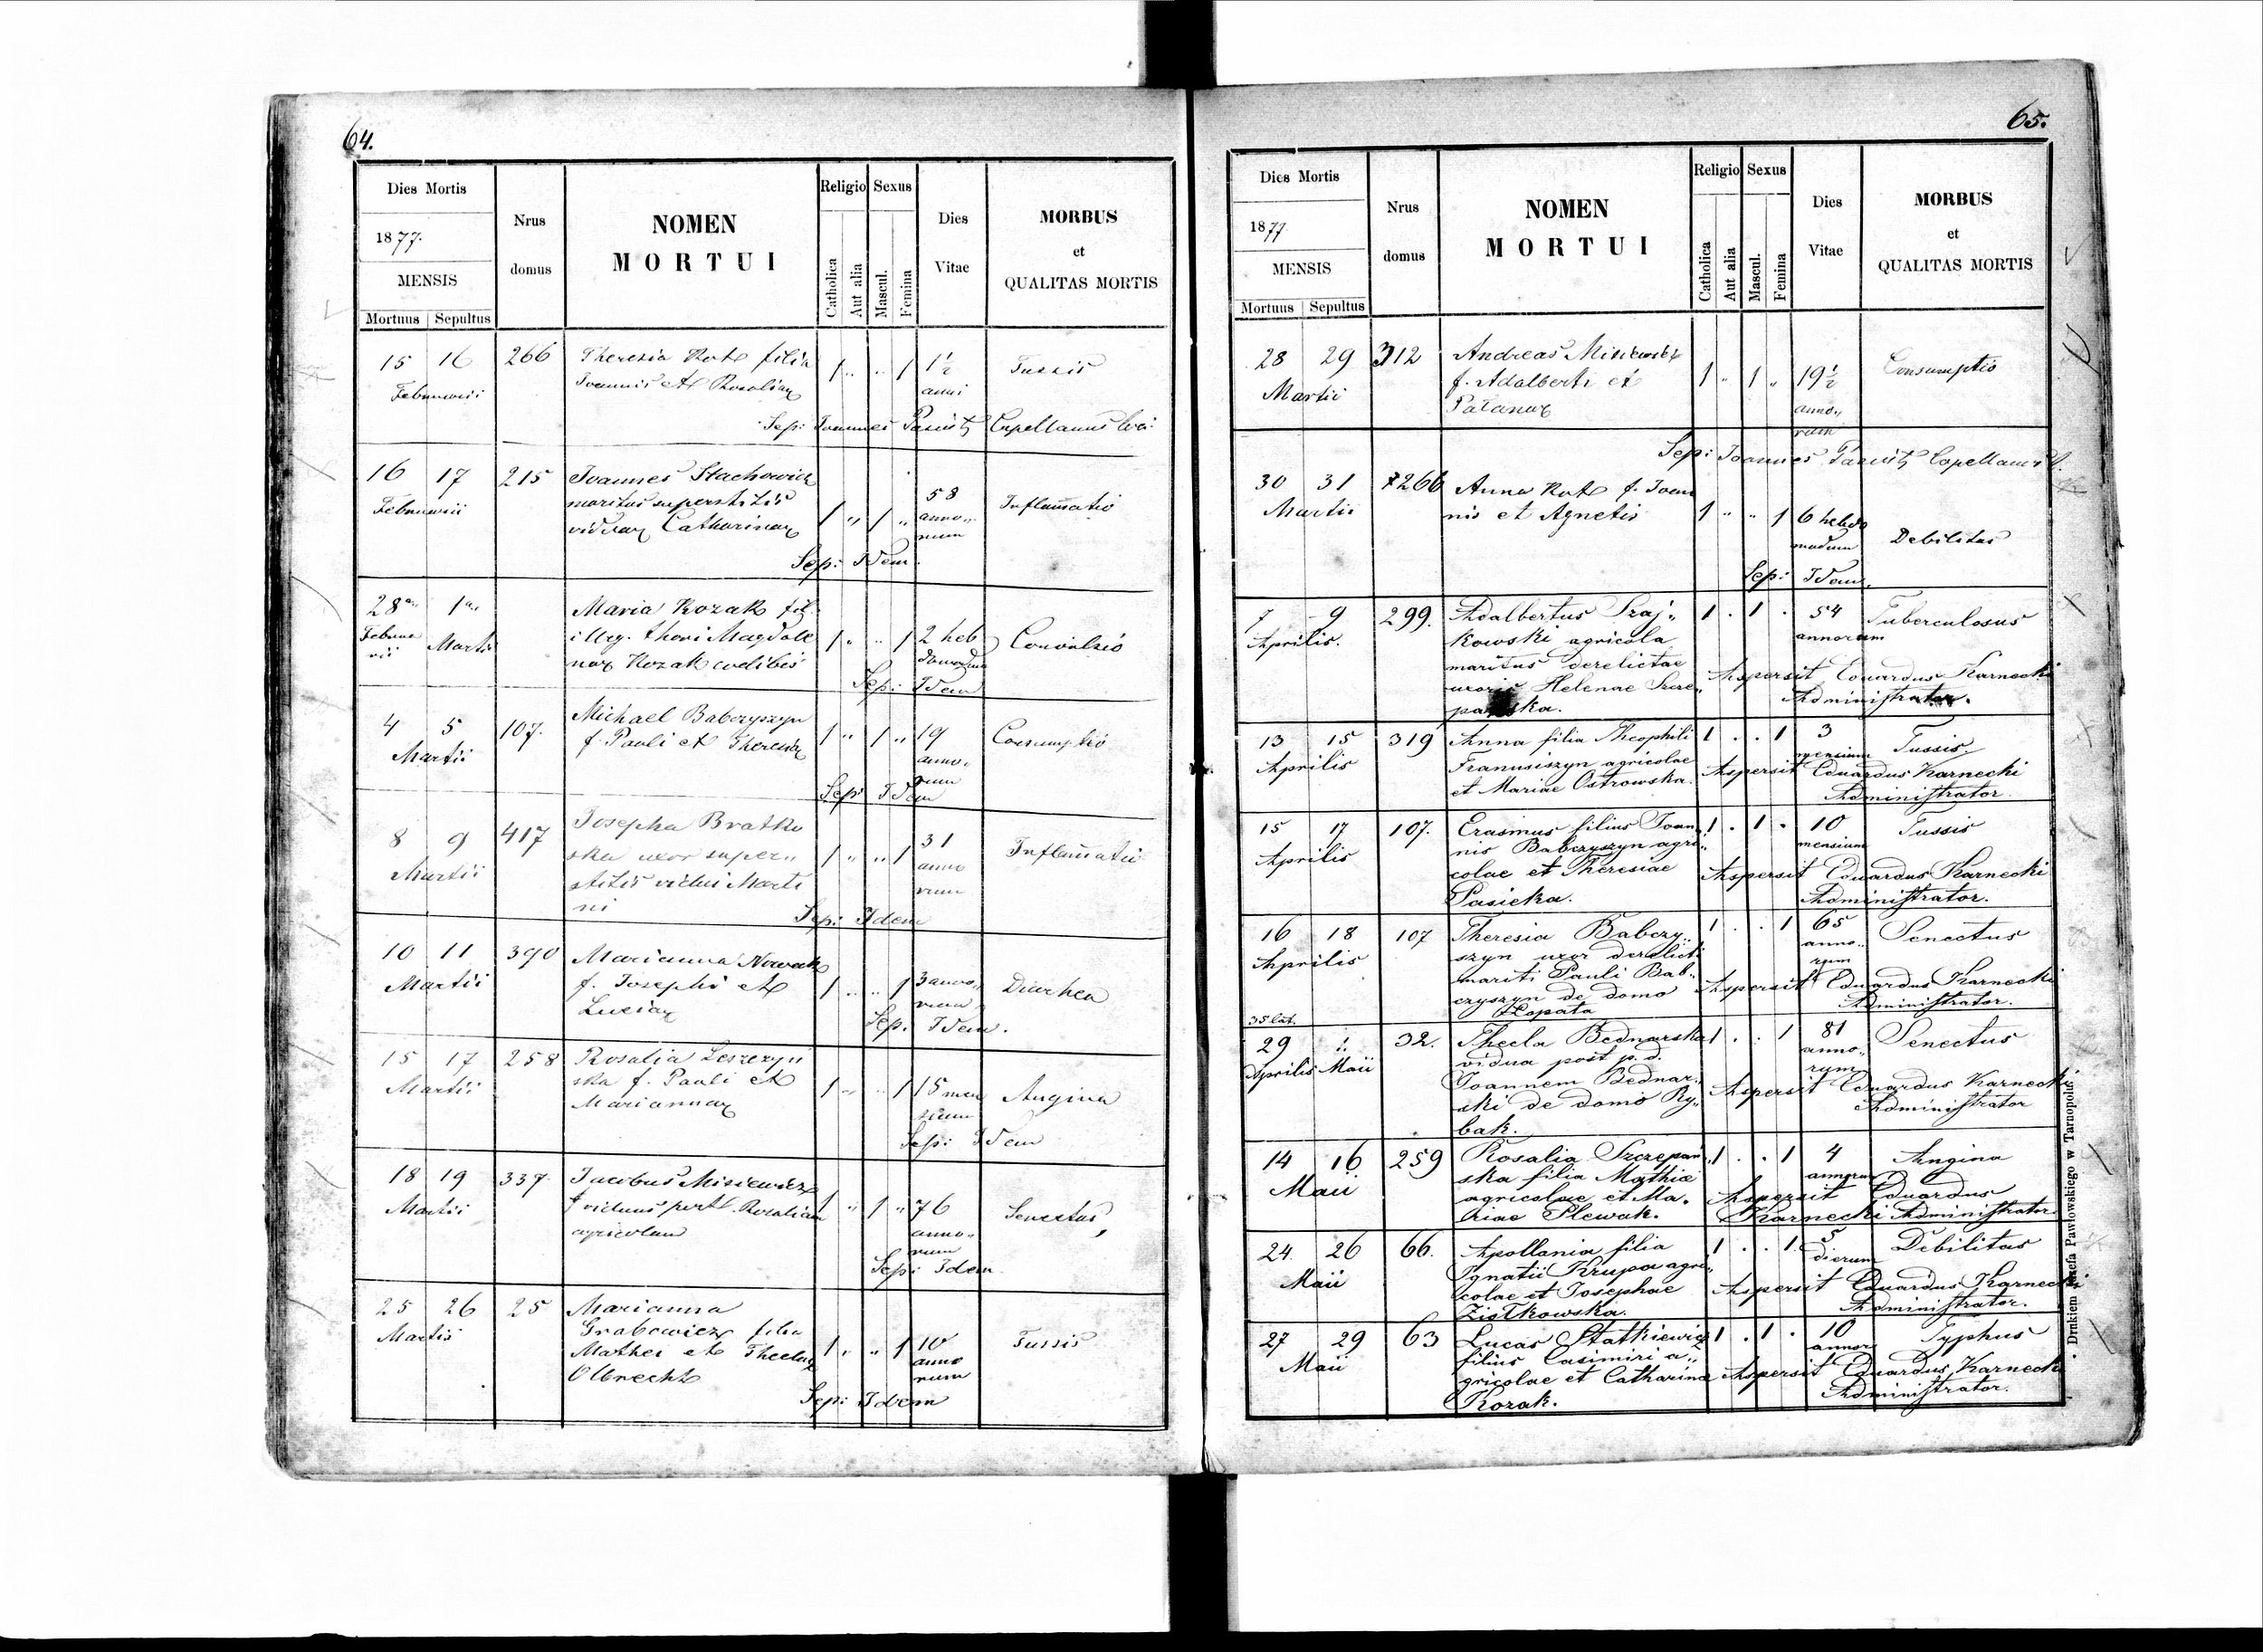 64.
Dies Mortis
1877.
MENSIS
Mortuus Sepultus
Nrus domus
NOMEN
MORTUI
Religio
Catholica
Aut alia
Sexus
Mascul.
Femina
Dies
Vitae
MORBUS
et
QUALITAS MORTIS
15 16 266 Theresia Rot filia 1 " " 1 1½ Tussis
Februarii Joannis et Rosaliae anni
Sep: Joannes Capellanus
16 17 215 Joannes Stachowicz
Februarii maritus superstitis 58 Inflam̄atio
viduae Catharinae 1 " 1 " anno„
rum
Sep: Idem.
28 1 Maria Kozak fil.
Februarii Martii illeg. thori Magdale 1 " " 1 2 heb Convulsio
nae Kozak coelibis domadum
Sep: Idem
4 5 107. Michael Babczyszyn
Martii f. Pauli et Theresiae 1 " 1 " 19 Consumptio
anno„
rum
Sep: Idem
8 9 417 Josepha Bratko
Martii ska uxor super„ 1 " " 1 31 Inflam̄atio
stitis vidui Marti anno
ni rum
Sep: Idem
10 11 390 Marianna Nowak
Martii f. Josephi et 1 " " 1 3 anno„ Diarhea
Luciae rum
Sep. Idem.
15 17 258 Rosalia Leszczyń
Martii ska f. Pauli et 1 " " 1 15 men Angina
Mariannae sium
Sep: Idem
18 19 337 Jacobus Misiewicz
Martii viduus post Rosaliam 1 " 1 " 76 Senectus
agricolam anno„
rum
Sep: Idem
25 26 25 Marianna
Martii Grabowicz filia
Mathei et Theclae 1 " " 1 10 Tussis
Olbrecht anno
rum
Sep: Idem
65.
Dies Mortis
1877
MENSIS
Mortuus Sepultus
Nrus
domus
NOMEN
MORTUI
Religio
Catholica
Aut alia
Sexus
Mascul.
Femina
Dies
Vitae
MORBUS
et
QUALITAS MORTIS
28 29 312 Andreas Misiewicz
Martii f. Adalberti et 1 " 1 " 19½ Consumptio
anno„
rum
Sep: Joannes Capellanus
30 31 266 Anna Rot f. Joan
Martii nis et Agnetis 1 " " 1 6 hebdo
madum Debilitas
Sep: Idem.
7 9 299. Adalbertus Szaj„ 1 . 1 . 54 Tuberculosus
Aprilis. kowski agricola annorum
maritus derelictae
uxoris Helenae Szcze„ Aspersit Eduardus Karnecki
pańska. Administrator.
13 15 319 Anna filia Theophili 1 . . 1 3 Tussis.
Aprilis Franusiszyn agricolae mensium
et Mariae Ostrowska. Aspersit Eduardus Karnecki
Administrator.
15 17 107. Erasmus filius Joan„ 1 . 1 . 10 Tussis
Aprilis nis Babczyszyn agri„ mensium
colae et Theresiae Aspersit Eduardus Karnecki
Pasieka. Administrator.
16 18 107 Theresia Babczy„ 1 . . 1 65 Senectus
Aprilis szyn uxor derelicti anno„
mariti Pauli Bab„ rum
czyszyn de domo Aspersit Eduardus Karnecki
Łopata Administrator.
35 lat.
29 1. 32. Thecla Bednarska 1 . . 1 81 Senectus
Aprilis Maii vidua post p. d. anno„
Joannem Bednar„ rum
ski de domo Ry„ Aspersit Eduardus Karnecki
bak. Administrator
14 16 259 Rosalia Szczepań„ 1 . . 1 4 Angina
Maii ska filia Mathiae annorum
agricolae et Ma„ Aspersit Eduardus
riae Plewak. Karnecki Administrator
24. 26 66. Apollania filia 1 . . 1. 5 Debilitas
Maii Ignatii Krupa agri„ dierum
colae et Josephae Aspersit Eduardus Karnecki
Ziółkowska. Administrator.
27 29 63 Lucas Statkiewicz 1 . 1 . 10 Typhus
Maii filius Casimiri a„ annor
gricolae et Catharina Aspersit Eduardus Karnecki
Kozak. Administrator.
Drukiem Józefa Pawłowskiego w Tarnopolu.